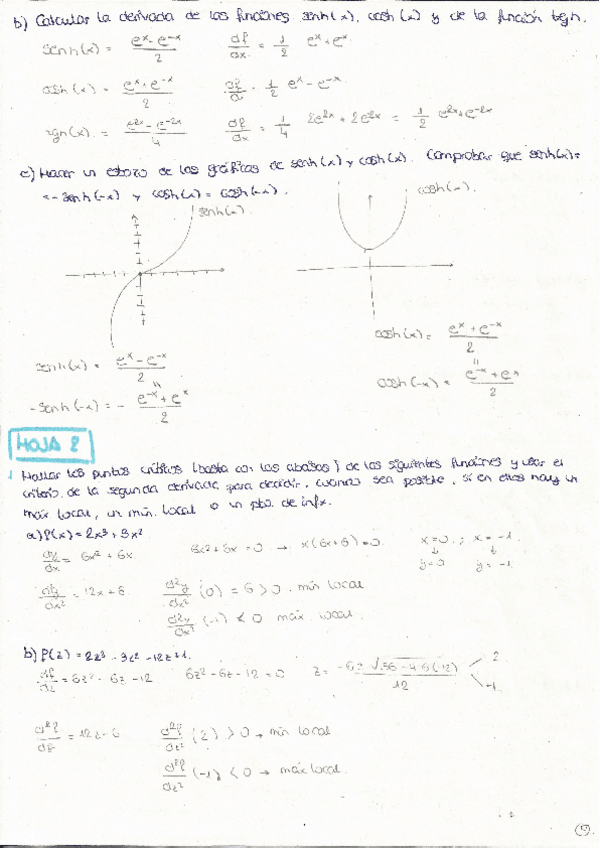 b) Calcular la derivada de las funciones senh(x), cosh(x) y de la función tgn.
senh(x) = (e^x - e^-x)/2   df/dx = 1/2 e^x + e^-x.
cosh(x) = (e^x + e^-x)/2   1/2 e^x - e^-x.
(e^2x - e^-2x)/4   df/dx = 1/4 2e^2x + 2e^2x = 1/2 e^2x + e^-2x
c) Hacer un esbozo de las gráficas de senh(x) y cosh(x). Comprobar que senh(x)=
= - senh(-x) y cosh(x) = cosh(-x).
senh(x).
cosh(x).
cosh(x) = (e^x + e^-x)/2
senh(x) = (e^x - e^-x)/2
=
cosh(-x) = (e^-x + e^x)/2
=
- senh(-x) = - (e^-x + e^x)/2
HOJA 2
1 Hallar los puntos críticos (basta con las abcisas) de las siguientes funciones y usar el
criterio de la segunda derivada para decidir, cuando sea posible, si en ellos hay un
máx local, un mín. local o un pto. de infx.
a) f(x) = 2x^3 + 3x^2
= 6x^2 + 6x.   6x^2 + 6x = 0 → x(6x+6) = 0.   x = 0 ; x = -1.
y = 0   y = -1
= 12x + 6   d^2y/dx^2 (0) = 6 > 0. mín local
d^2y/dx^2 (-1) < 0 máx. local.
b) f(z) = 2z^3 - 3z^2 - 12z + 1.
df/dz = 6z^2 - 6z - 12   6z^2 - 6z - 12 = 0   12   2
-1
= 12z - 6   d^2f/dz^2 (2) > 0 → mín local
d^2f/dz^2 (-1) < 0 → máx local.